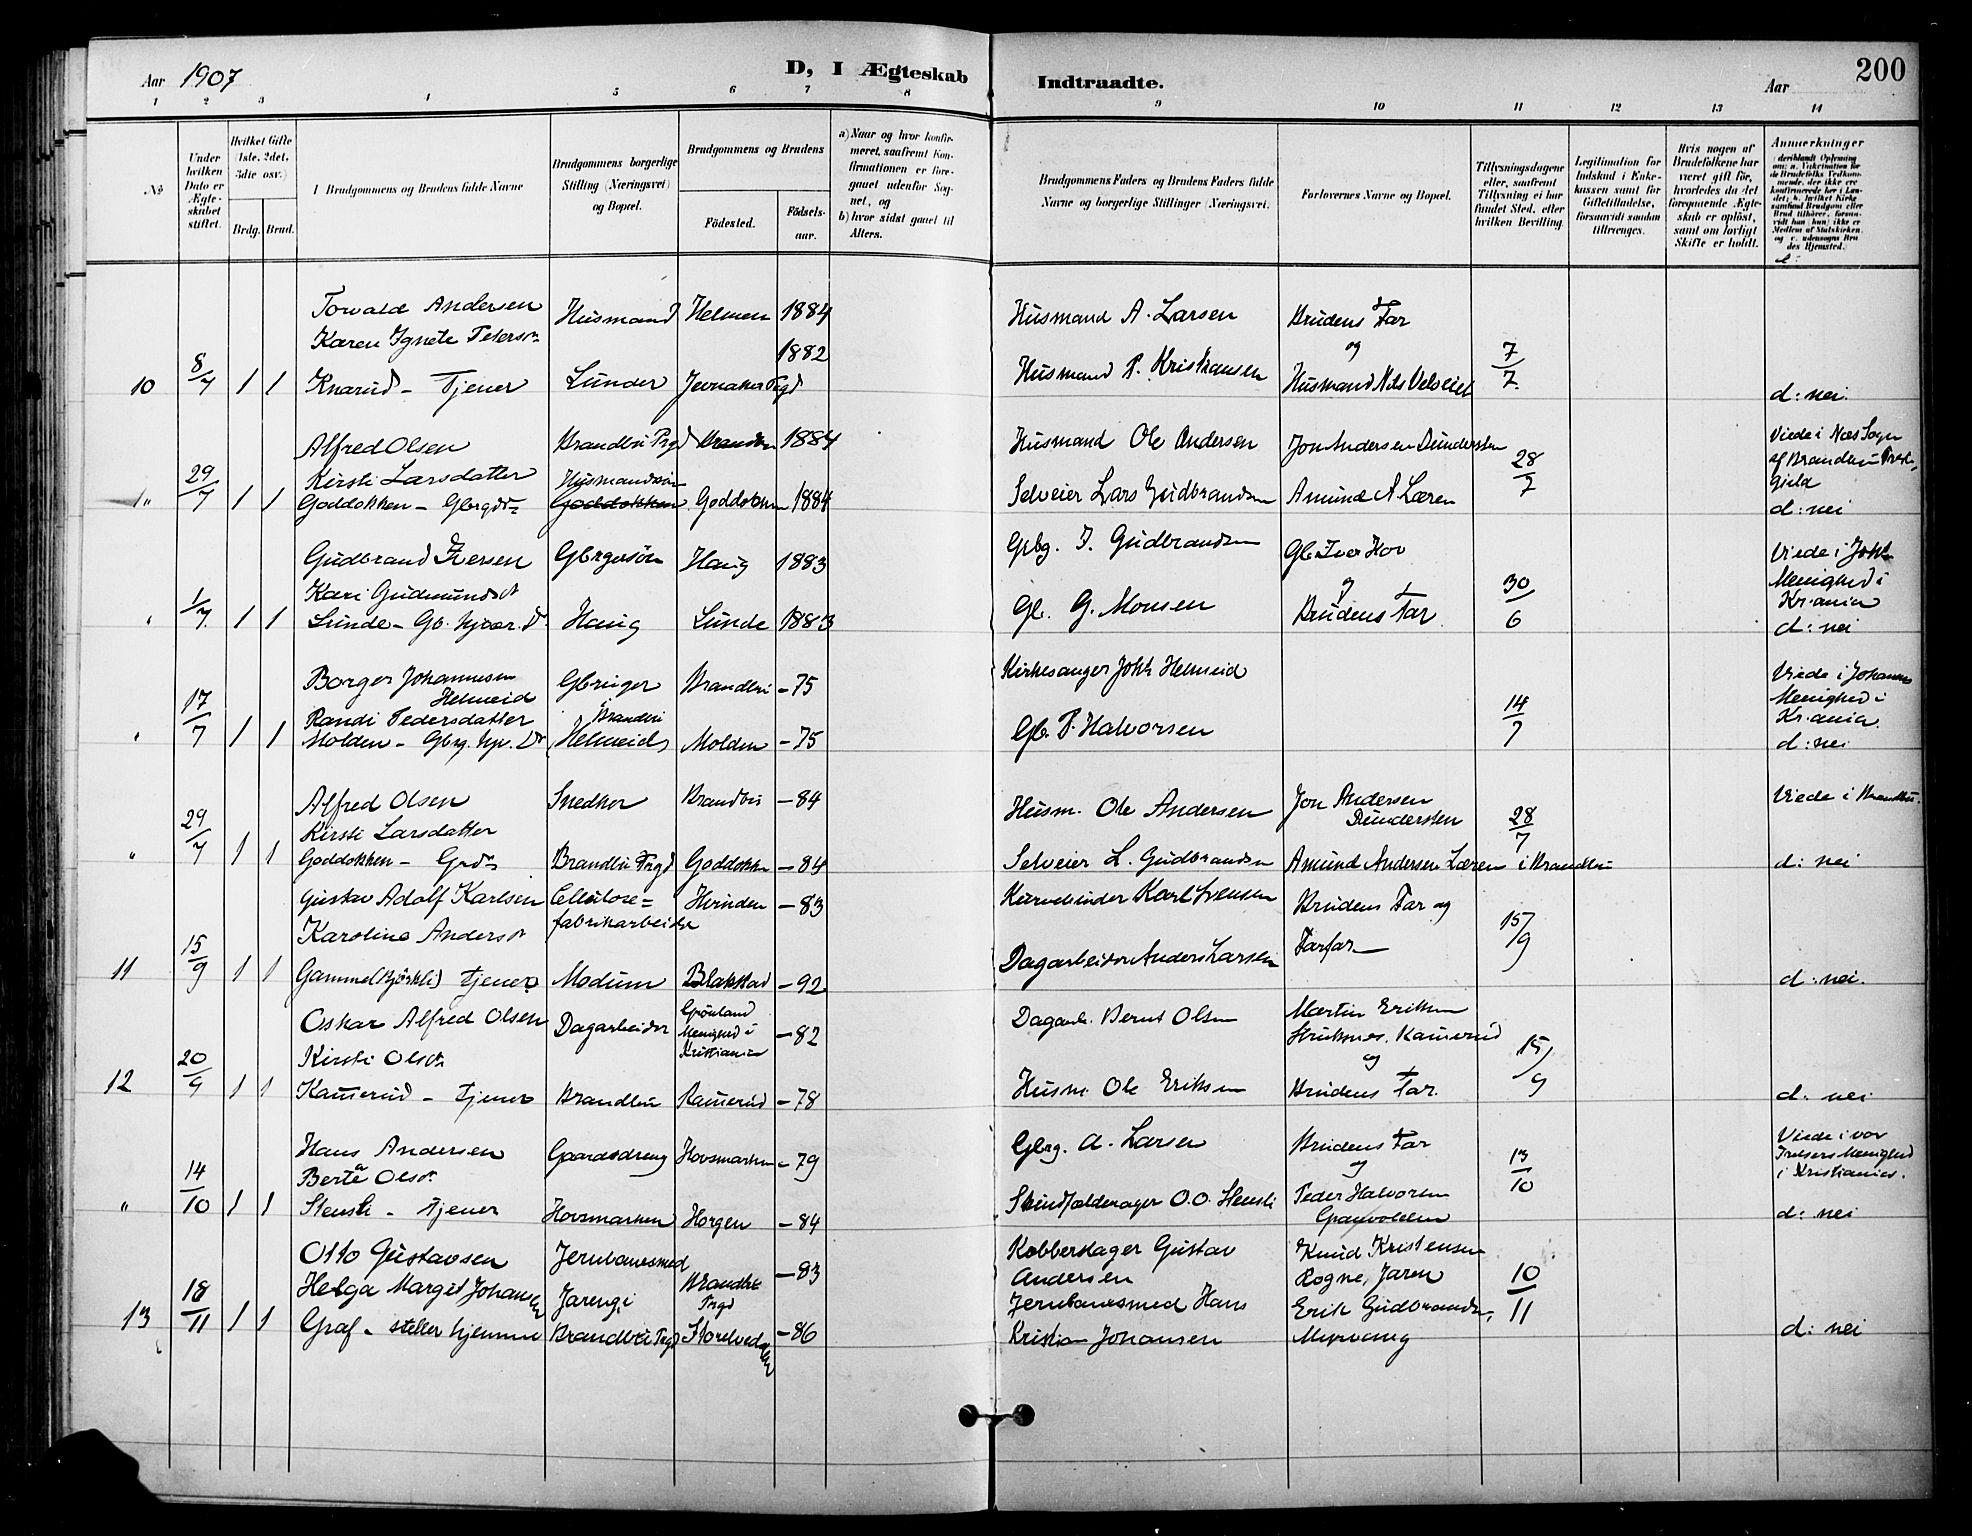 Aar 1907
D, I Ægteskab Indtraadte.
Aar
200
1 2 3 4 5 6 7 8 9 10 11 12 13 14
No
Under hvilken Dato er Ægteskabet stiftet.
Hvilket Gifte (1ste, 2det, 3die osv.)
Brdg. Brud.
Brudgommens og Brudens fulde Navne
Brudgommens borgerlige Stilling (Næringsvei) og Bopæl.
Brudgommens og Brudens
Fødested.
Fødselsaar.
a) Naar og hvor konfirmeret, saafremt Konfirmationen er foregaaet udenfor Sognet, og
b) hvor sidst gaaet til Alters.
Brudgommens Faders og Brudens Faders fulde Navne og borgerlige Stillinger (Næringsvei.
Forlovernes Navne og Bopæl.
Tillysningsdagene eller, saafremt Tillysning ei har fundet Sted, efter hvilken Bevilling.
Legitimation for Indskud i Enkekassen samt for Giftetilladelse, forsaavidt saadan tiltrænges.
Hvis nogen af Brudefolkene har været gift før, hvorledes da det foregaaende Ægteskab er opløst, samt om lovligt Skifte er holdt.
Anmærkninger
Torvald Andersen Husmand Helmen 1884 Husmand A. Larsen Brudens Far
Karen Agnete Petersdr 1882 og
10 8/7 1 1 Knarud - Tjener Lunder Jevnaker Prgd Husmand P. Kristiansen Husmand Nils Velseiet 7/7 d: nei.
Alfred Olsen Brandbu Prgd Brandbu 1884 Husmand Ole Andersen Jon Andersen Dundersten Viede i Næs Sogn
Kirsti Larsdatter Husmandssøn 28/7 af Brandbu Præstegjeld
" 29/7 1 1 Goddokken - Gbrgdr Goddokken Goddokken 1884 Selveier Lars Gudbrandsen Amund A Læren d: nei
Gudbrand Iversen Gbrgersøn Haug 1883 Gbg. I. Gudbrandsen Gb. Iver Hov Viede i Johs
Kari Gudmundsdt og Menighed i Kr.ania
" 1/7 1 1 Lunde - Gb. hjvær. D. Haug Lunde 1883 Gb. G. Monsen Brudens Far 30/6 d: nei
Borger Johannesen Helmeid Gbruger Brandbu - 75 Kirkesanger Johs Helmeid Viede i Johannes
Randi Pedersdatter i Brandbu Menighed i Kr.ania
" 17/7 1 1 Molden - Gbrg. hjv. Dr Helmeid Molden - 75 Gb. P. Halvorsen 14/7 d: nei
Alfred Olsen Snedker Brandbu - 84 Husm. Ole Andersen Jon Andersen Dundersten Viede i Brandbu.
Kirsti Larsdatter
" 29/7 1 1 Goddokken - Grdr Brandbu Prgd Goddokken - 84 Selveier L. Gudbrandsen Amund Andersen Læren i Brandbu 28/7 d: nei
Gustav Adolf Karlsen Cellulosefabrikarbeider Hvinden - 83 Kurvebinder Karl Svensen Brudens Far og
Karoline Andersdt
11 15/9 1 1 Gamme (Björkli) tjener Modum Blakstad - 92 Dagarbeider Anders Larsen Farfar 15/9 d: nei.
Oskar Alfred Olsen Dagarbeider Grönland Menighed i Kristiania - 82 Dagarb. Bernt Olsen Martin Eriksen
Kirsti Olsdr Struksnes, Kamerud og
12 20/9 1 1 Kamerud - tjener Brandbu Kamerud - 78 Husm. Ole Eriksen Brudens Far. 15/9 d: nei
Hans Andersen Gaardsdreng Hovsmarken - 79 Gbrg. A. Larsen Brudens Far Viede i vor
Berte Olsdr og Frelsers Menighed i Kristiania.
" 14/10 1 1 Stensli - tjener Hovsmarken Horgen - 84 Skindfældmager O.O. Stensli Peder Halvorsen Granvolden 13/10 d: nei
Otto Gustavsen Jernbanesmed Brandbu Prgd - 83 Kobberslager Gustav Andersen Knud Kristensen Rogne, Jaren
Helga Margit Johansen Jaren i Jernbanesmed Hans Erik Gudbrandsen,
13 18/11 1 1 Graf - steller hjemme Brandbu Prgd Storelvedalen - 86 Kristian Johansen Myrvang 10/11 d: nei